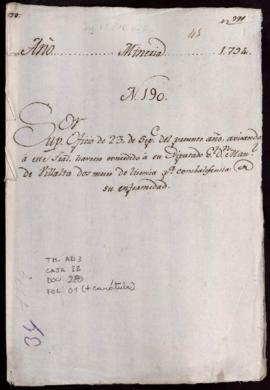 45
Año Mineria 1.794.
N. 190.
Sup. Oficio de 23. de Sep.e del presente año, avisando
á este Tral. haverse concedido á su Diputado Gl. Dn. Man.
de Villalta dos meses de licencia
su enfermedad.
TM. AD3
CAJA 22
DOC
FOL: 01 (+ carátula)
34